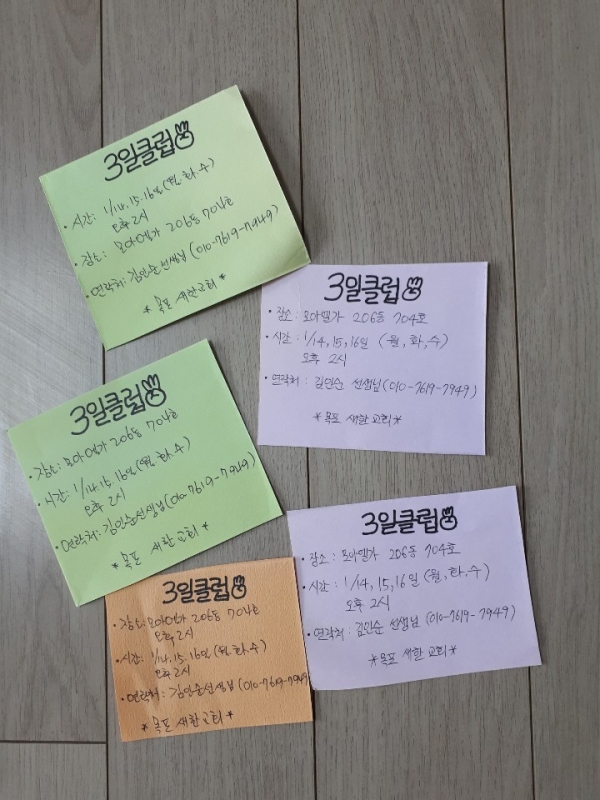 3일클럽
· 시간: 1/14, 15, 16일 (월, 화, 수)
오후 2시
· 장소: 모아엘가 206동 704호
· 연락처: 김인순선생님 (010-7619-7949)
* 목포 새한교회 *
3일클럽
· 장소: 모아엘가 206동 704호
· 시간: 1/14, 15, 16일 (월, 화, 수)
오후 2시
· 연락처: 김인순 선생님 (010-7619-7949)
*목포 새한 교회*
3일클럽
· 장소: 모아엘가 206동 704호
· 시간: 1/14, 15, 16일 (월, 화, 수)
오후 2시
· 연락처: 김인순선생님 (010-7619-7949)
* 목포 새한교회 *
3일클럽
· 장소: 모아엘가 206동 704호
· 시간: 1/14, 15, 16일 (월, 화, 수)
오후 2시
· 연락처: 김인순 선생님 (010-7619-7949)
*목포 새한 교회*
3일클럽
· 장소: 모아엘가 206동 704호
오후 2시
· 시간: 1/14, 15, 16일 (월, 화, 수)
오후 2시
· 연락처: 김인순선생님 (010-7619-7949)
* 목포 새한교회 *